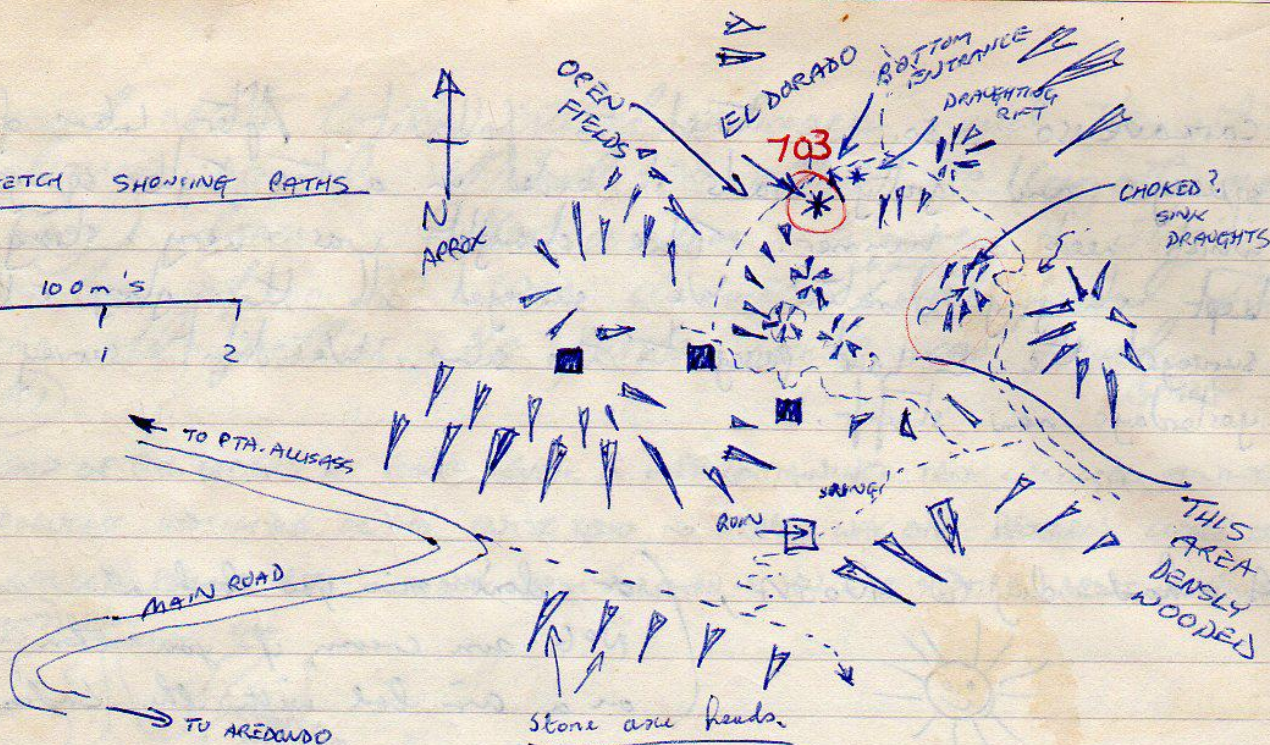 ETCH SHOWING PATHS
100m's
1 2
N
APROX
OPEN
FIELDS
ELDORADO
BOTTOM
ENTRANCE
DRAUGHTING
RIFT
703
CHOKED?
SINK
DRAUGHTS
TO PTA. ALLISASS
MAIN ROAD
TO AREDONDO
RUIN
SPRING
THIS
AREA
DENSLY
WOODED
Stone axe heads.